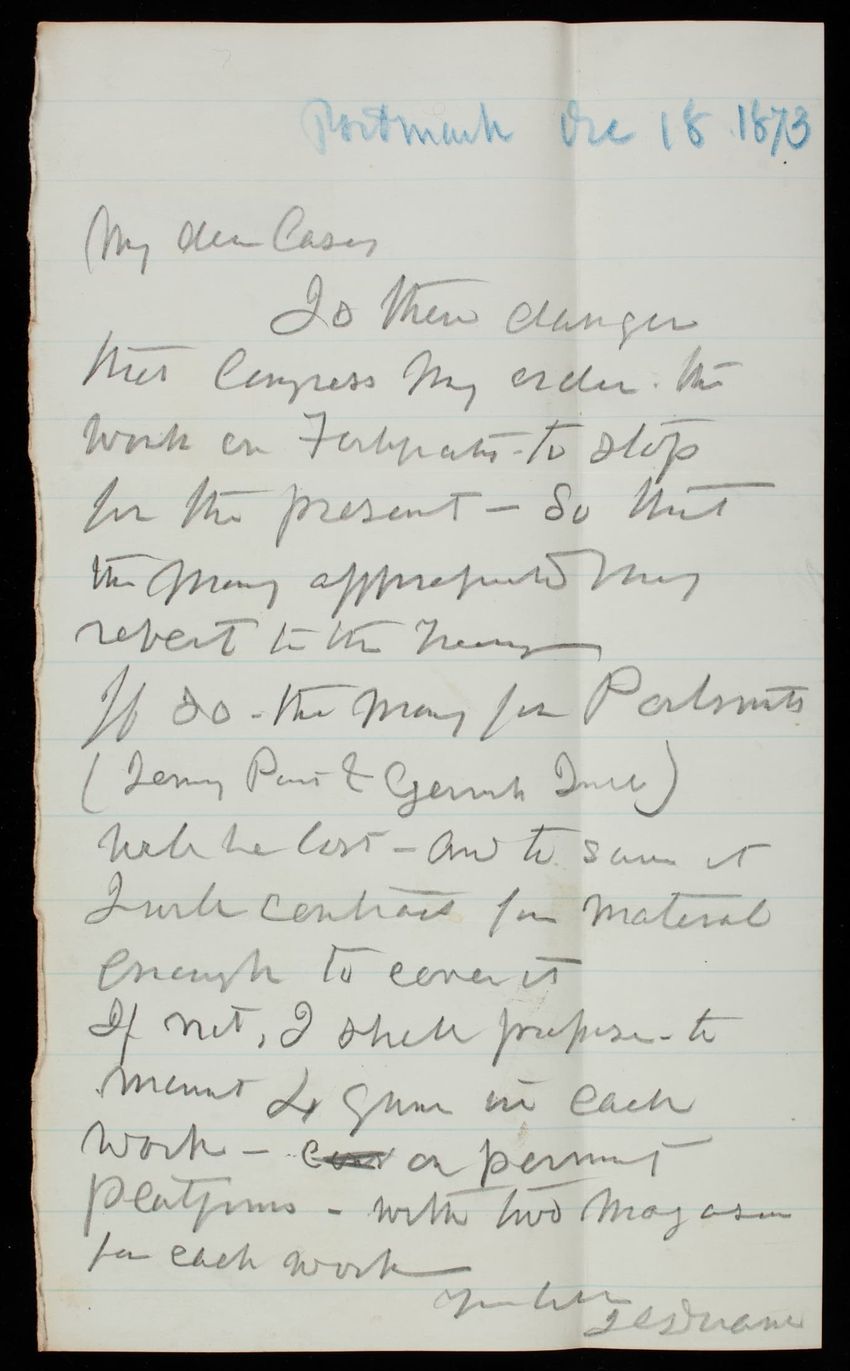 Postmark Dec 18 1873
My dear Casey
Is there danger
that Congress may order the
work on Fortifications to stop
for the present – So that
the money appropriated may
revert to the Treasury
If so - the money for Portsmouth
(Jerry Point & Gerrish Isld)
will be lost – and to save it
I will contract for material
enough to cover it
If not, I shall propose - to
mount 4 guns in each
work – on permanent
platforms - with two magazines
for each work
J C Duane